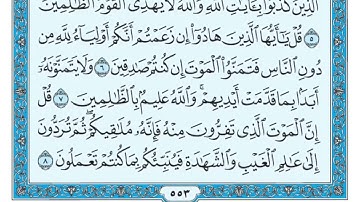 الَّذِينَ كَذَّبُوا۟ بِـَٔايَٰتِ ٱللَّهِ وَٱللَّهُ لَا يَهْدِى ٱلْقَوْمَ ٱلظَّٰلِمِينَ
٥ قُلْ يَٰٓأَيُّهَا ٱلَّذِينَ هَادُوٓا۟ إِن زَعَمْتُمْ أَنَّكُمْ أَوْلِيَآءُ لِلَّهِ مِن
دُونِ ٱلنَّاسِ فَتَمَنَّوُا۟ ٱلْمَوْتَ إِن كُنتُمْ صَٰدِقِينَ ٦ وَلَا يَتَمَنَّوْنَهُۥٓ
أَبَدًۢا بِمَا قَدَّمَتْ أَيْدِيهِمْ ۚ وَٱللَّهُ عَلِيمٌۢ بِٱلظَّٰلِمِينَ ٧ قُلْ
إِنَّ ٱلْمَوْتَ ٱلَّذِى تَفِرُّونَ مِنْهُ فَإِنَّهُۥ مُلَٰقِيكُمْ ۖ ثُمَّ تُرَدُّونَ
إِلَىٰ عَٰلِمِ ٱلْغَيْبِ وَٱلشَّهَٰدَةِ فَيُنَبِّئُكُم بِمَا كُنتُمْ تَعْمَلُونَ ٨
٥٥٣